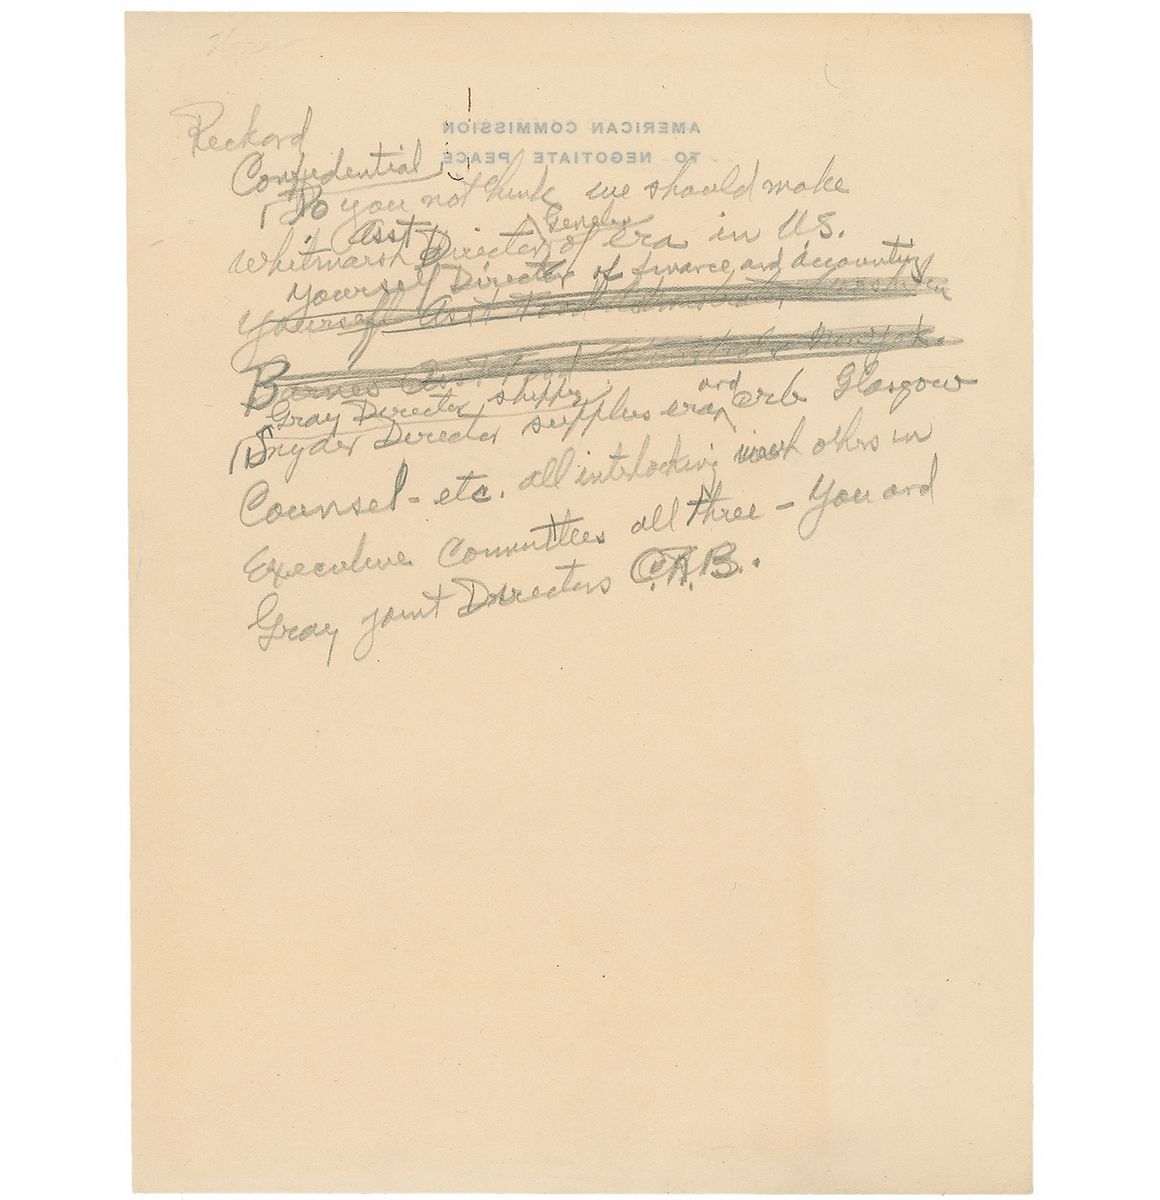 AMERICAN COMMISSION
TO NEGOTIATE PEACE
Reckard
Confidential
Do you not think we should make
Asst General
Whitmarsh Director of era in U.S.
Yourself Director of finance and accounting
Yourself Asst Food
Barnes Asst Food
Gray Director shipping
Snyder Director supplies era and crb Glasgow
Counsel - etc. all interlocking with others in
Executive Committees all three - You and
Gray joint Directors C.R.B.